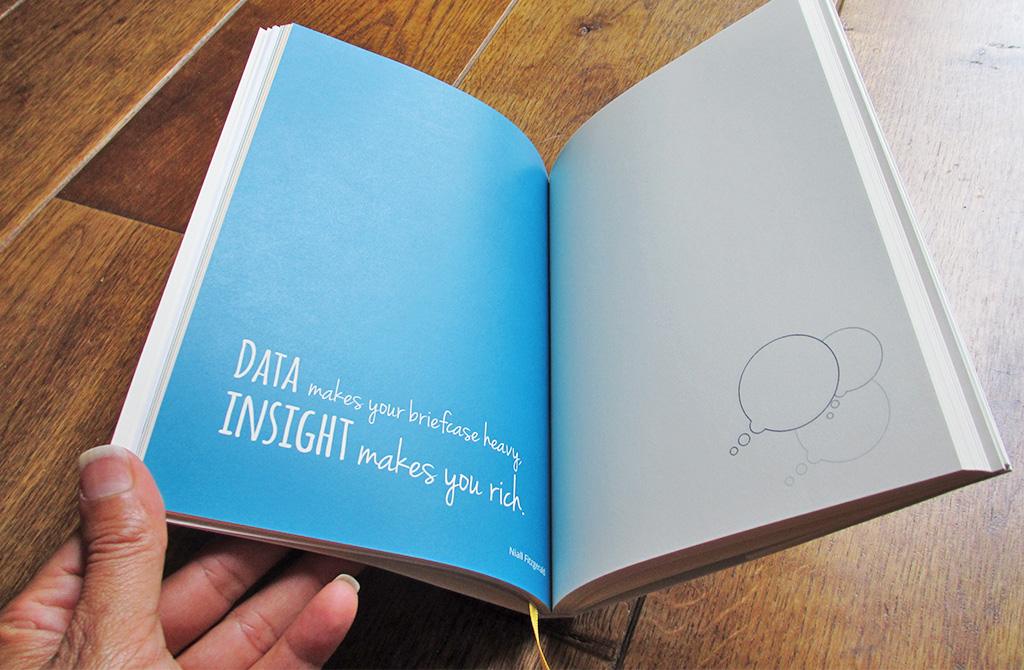 DATA makes your briefcase heavy,
INSIGHT makes you rich.
Niall Fitzgerald